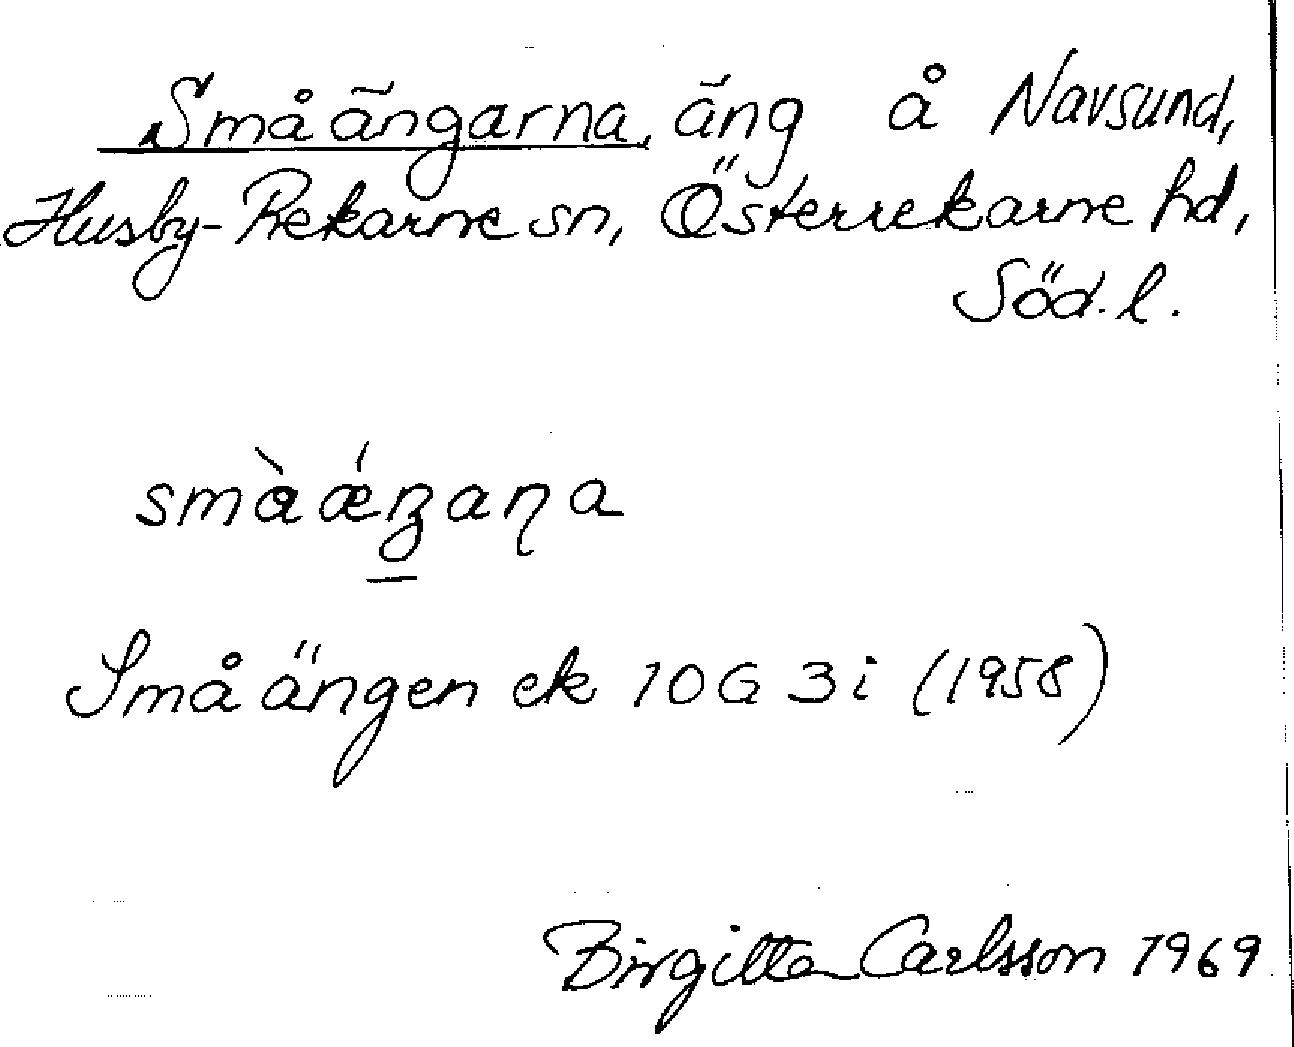 Småängarna, äng å Navsund,
Husby-Rekarne sn, Österrekarne hd,
Söd. l.
småǽŋaɳa
Småängen ek 10G 3i (1958)
Birgitta Carlsson 1969